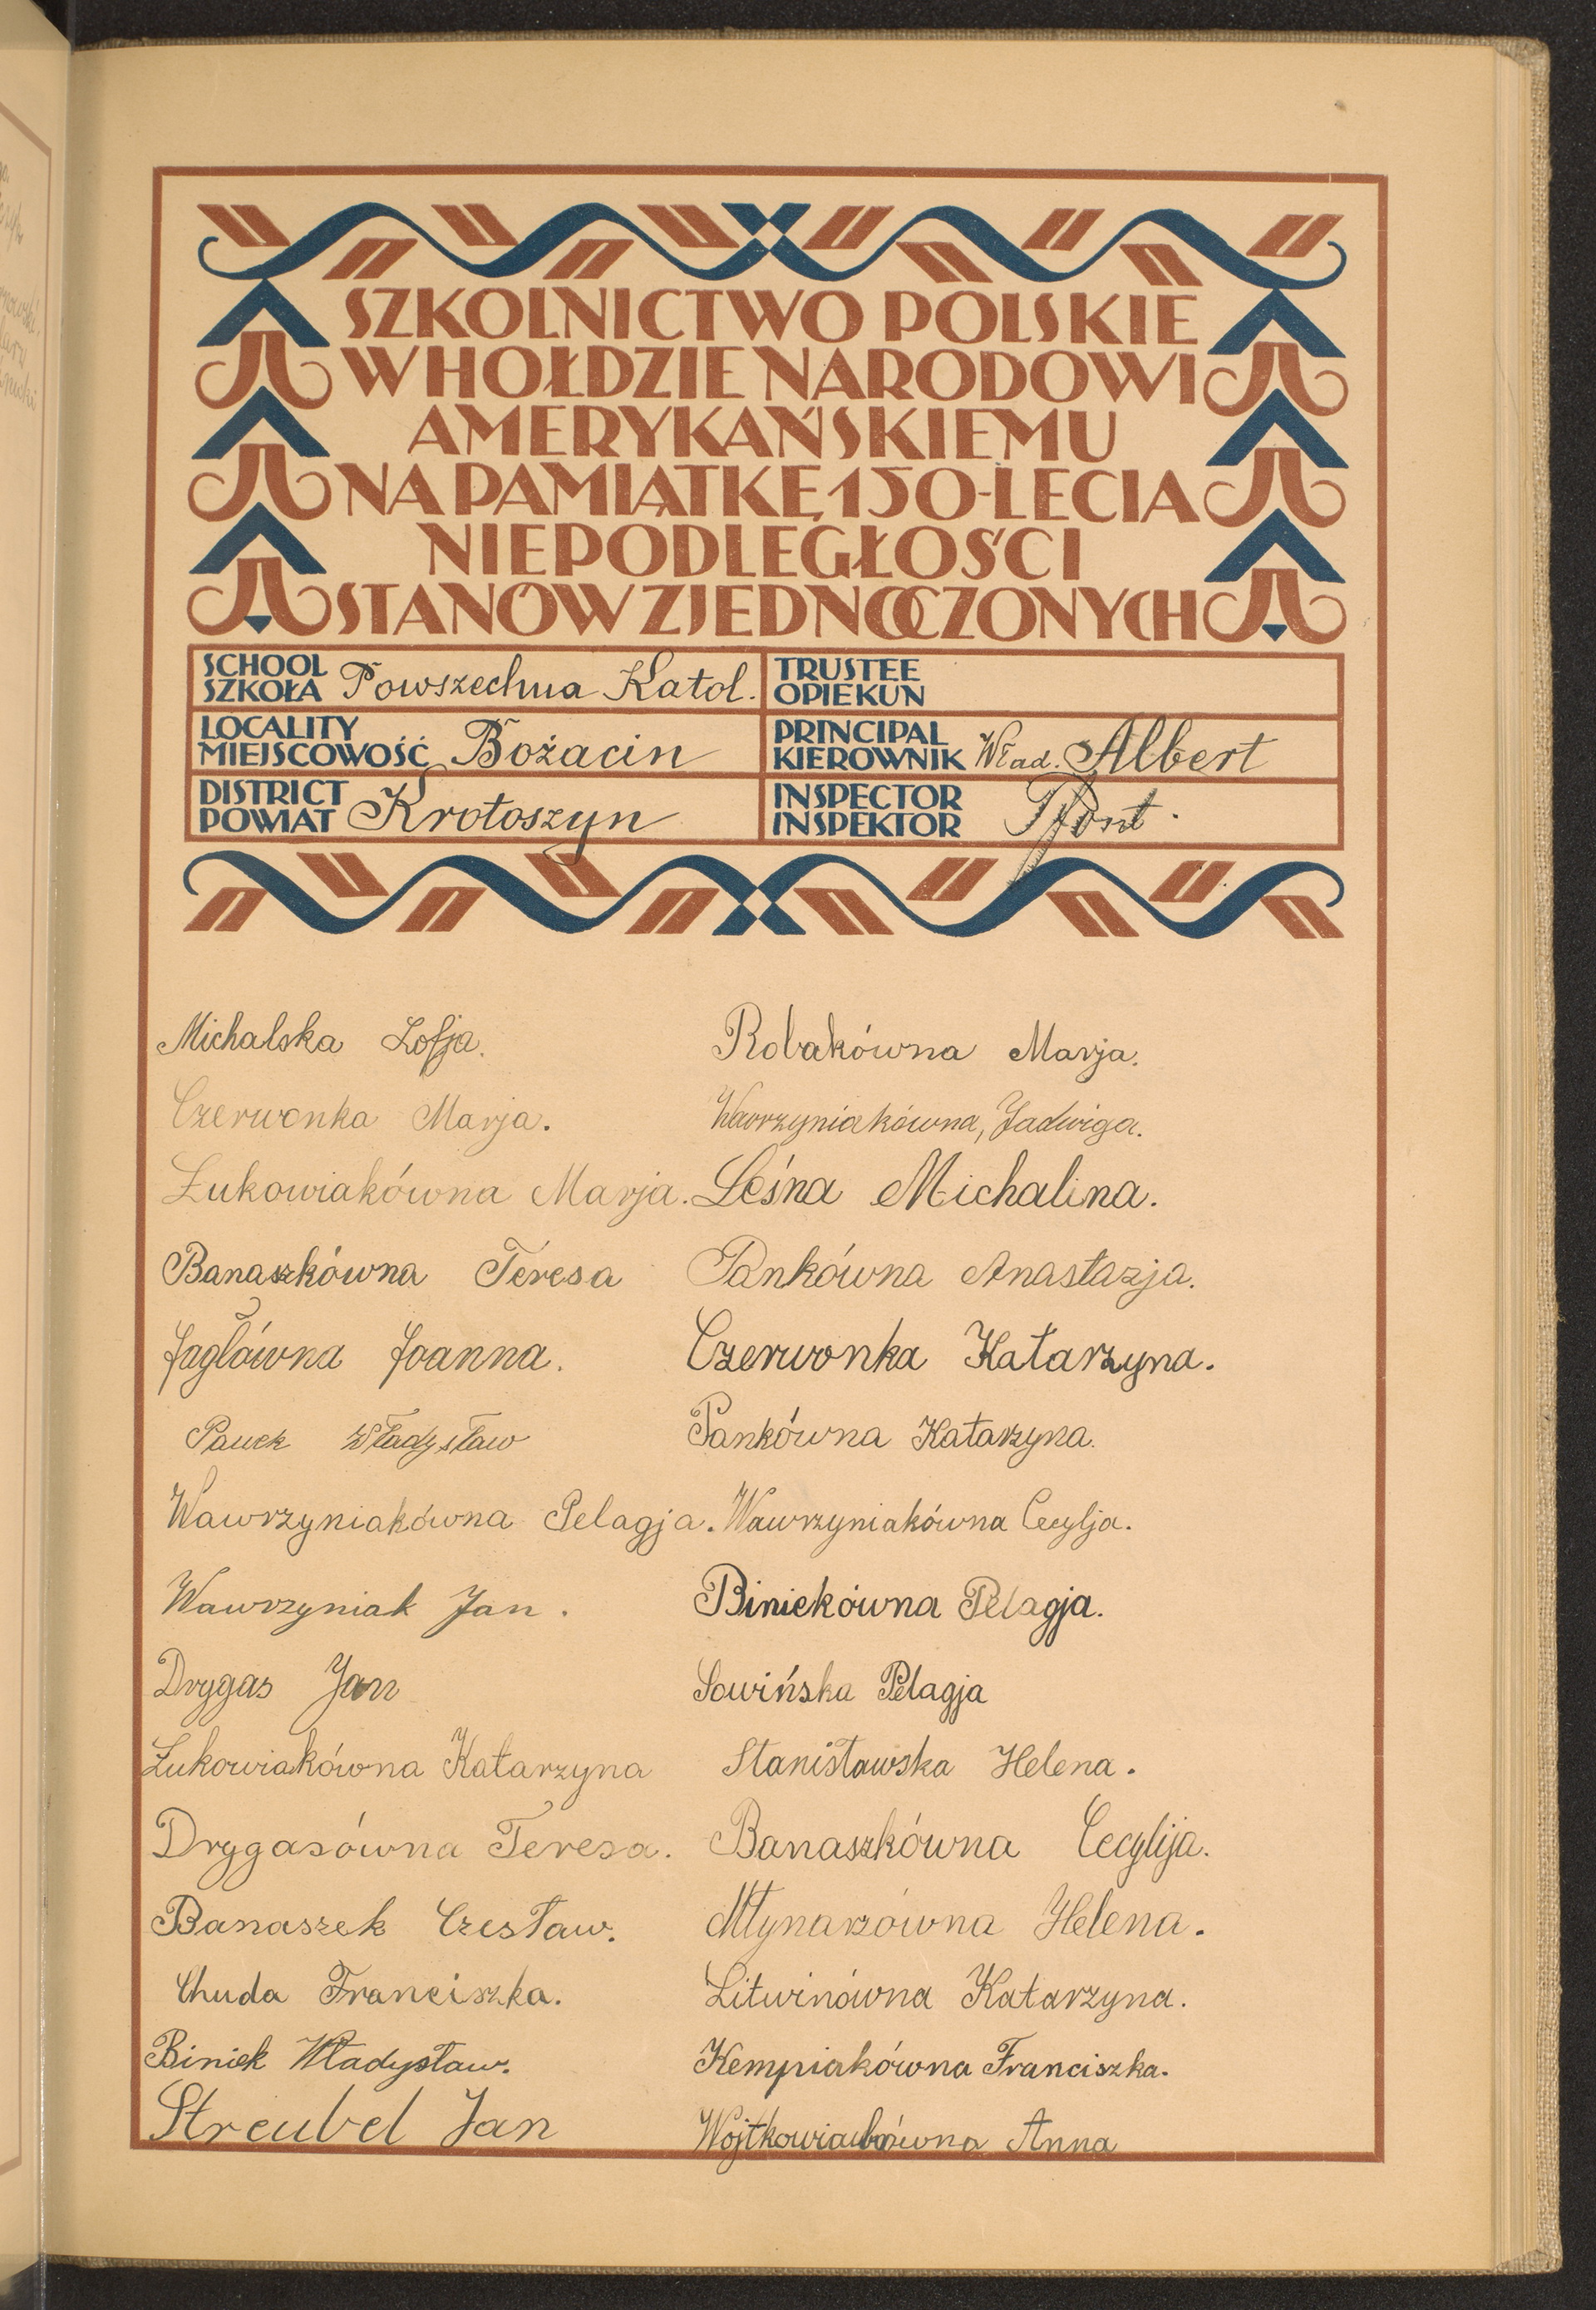 SZKOLNICTWO POLSKIE
W HOŁDZIE NARODOWI
AMERYKAŃSKIEMU
NA PAMIĄTKĘ 150-LECIA
NIEPODLEGŁOŚCI
STANÓW ZJEDNOCZONYCH
SCHOOL
SZKOŁA Powszechna Katol.
TRUSTEE
OPIEKUN
LOCALITY
MIEJSCOWOŚĆ Bożacin
PRINCIPAL
KIEROWNIK Wład. Albert
DISTRICT
POWIAT Krotoszyn
INSPECTOR
INSPEKTOR Pfont.
Michalska Zofja.
Czerwonka Marja.
Łukowiakówna Marja.
Banaszkówna Teresa
Jaglówna Joanna.
Pauek Władysław
Wawrzyniakówna Pelagja.
Wawrzyniak Jan.
Drygas Jan
Łukowiakówna Katarzyna
Drygasówna Teresa.
Banaszek Czesław.
Chuda Franciszka.
Biniek Władysław.
Streubel Jan
Robakówna Marja.
Wawrzyniakówna, Jadwiga.
Leśna Michalina.
Pankówna Anastazja.
Czerwonka Katarzyna.
Pankówna Katarzyna.
Wawrzyniakówna Cecylja.
Biniekówna Pelagja.
Sowińska Pelagja
Stanisławska Helena.
Banaszkówna Cecylija.
Młynarzówna Helena.
Litwinówna Katarzyna.
Kempiakówna Franciszka.
Anna